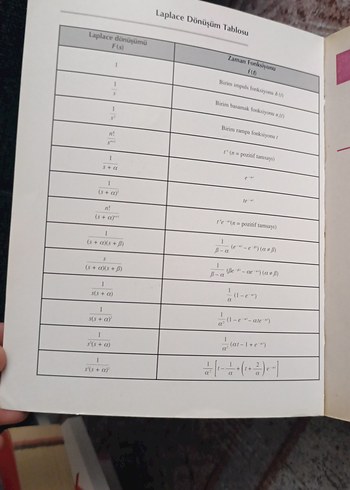 Laplace Dönüşüm Tablosu
Laplace dönüşümü F(s) | Zaman Fonksiyonu f(t)
1 | Birim impuls fonksiyonu δ(t)
1/s | Birim basamak fonksiyonu u_s(t)
1/s² | Birim rampa fonksiyonu t
n!/s^(n+1) | t^n (n = pozitif tamsayı)
1/(s + α) | e^(-αt)
1/(s + α)² | te^(-αt)
n!/(s + α)^(n+1) | t^n e^(-αt) (n = pozitif tamsayı)
1/((s + α)(s + β)) | 1/(β – α) (e^(-αt) – e^(-βt)) (α ≠ β)
s/((s + α)(s + β)) | 1/(β – α) (βe^(-βt) – αe^(-αt)) (α ≠ β)
1/(s(s + α)) | 1/α (1 – e^(-αt))
1/(s(s + α)²) | 1/α² (1 – e^(-αt) – αte^(-αt))
1/(s²(s + α)) | 1/α² (αt – 1 + e^(-αt))
1/(s²(s + α)²) | 1/α² [t – 2/α + (t + 2/α) e^(-αt)]